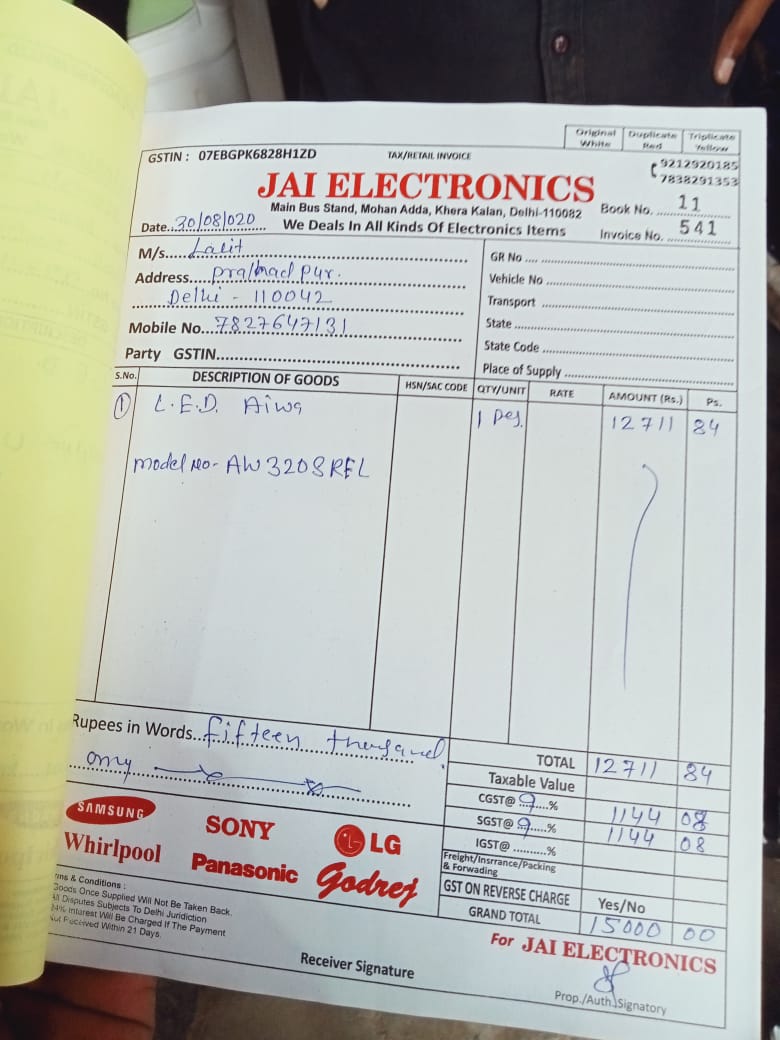 Original White Duplicate Red Triplicate Yellow
GSTIN : 07EBGPK6828H1ZD TAX/RETAIL INVOICE 9212920185
7838291353
JAI ELECTRONICS
Main Bus Stand, Mohan Adda, Khera Kalan, Delhi-110082 Book No. 11
Date. 30/08/020 We Deals In All Kinds Of Electronics Items Invoice No. 541
M/s. Lalit
Address. pralhad pur.
Delhi - 110042
Mobile No. 7827647131
Party GSTIN
GR No
Vehicle No
Transport
State
State Code
Place of Supply
S.No. DESCRIPTION OF GOODS HSN/SAC CODE QTY/UNIT RATE AMOUNT (Rs.) Ps.
1 L.E.D. Aiwa 1 pcs. 12711 84
model no- AW320SREL
Rupees in Words. fifteen thousand
only
TOTAL 12711 84
Taxable Value
CGST@ 9 % 1144 08
SGST@ 9 % 1144 08
IGST@ %
Freight/Insrrance/Packing
& Forwading
GST ON REVERSE CHARGE Yes/No
GRAND TOTAL 15000 00
SAMSUNG SONY LG
Whirlpool Panasonic Godrej
ms & Conditions :
Goods Once Supplied Will Not Be Taken Back.
All Disputes Subjects To Delhi Juridiction
24% Interest Will Be Charged If The Payment
Not Received Within 21 Days.
For JAI ELECTRONICS
Receiver Signature
Prop./Auth. Signatory